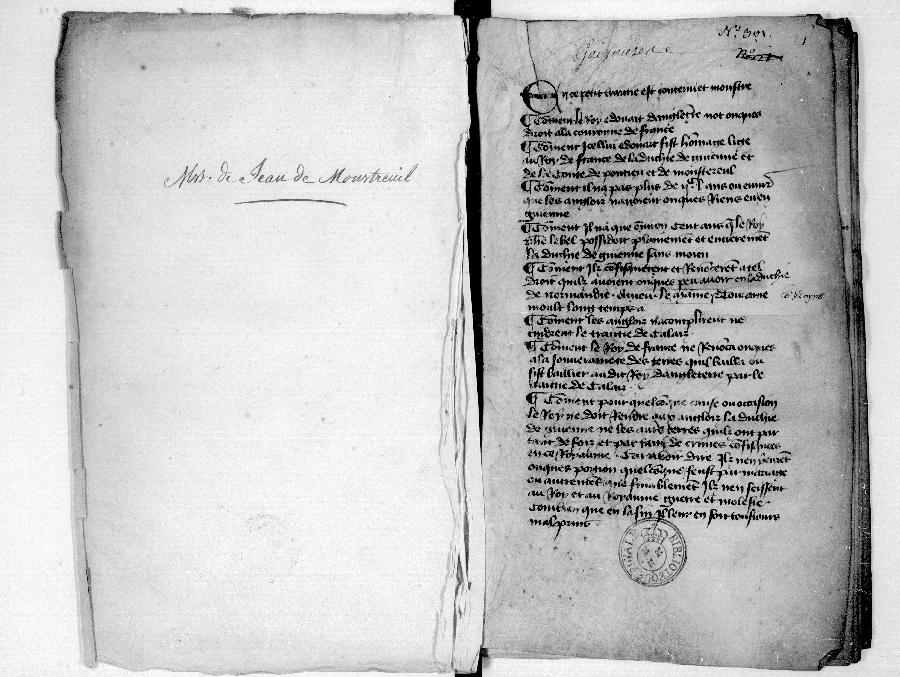 Mss. de Jean de Monstreuil
Gaignieres
1
En ce petit traittie est contenu et monstre
¶ Coment le Roy edouart dangletr̃e not onques
droit ala couronne de france
¶ Coment Icellui edouart fist hõmage lige
au Roy de france de la duchie de guienne et
de la Conte de pontieu et de monstereul
¶ Coment il na pas plus de ans ou enuir̃
que les anglois nauoient onques Riens en
guienne
¶ Coment Il na que enuiron Cent ans q̃ le Roy
phẽ le bel possidoit plainemẽt et entieremẽt
la duchie de guienne sans moien
¶ Cõment Ilz cõfisquerent et Renõcerẽt a tel
droit quilz auoient onques peu auoir en la duchie
de normandie . aniou . le mayne . Touraine
moult long temps a
¶ Coment les anglois nacomplirent ne
tindrent le traitie de Calais
¶ Coment le Roy de france ne Renõca onques
a la souuerainete des terres quil bailla ou
fist baillier au dit Roy dangleterre par le
traitie de Calais
¶ Coment pour quelcõque cause ou occasion
le Roy ne doit Rendre aux anglois la duchie
de guienne ne les autr̃s terres quilz ont par
tant de fois et par tant de crimes cõfisquees
en ce Royaume . Cest assauoir dire Ilz ney eurẽt
onques porcion quelcõque feust par mariage
ou autremẽt que finablemẽt Ilz ney feissent
au Roy et au Royaume guerre et moleste .
Combien que en la fin Il leur en soit tousiours
mal prins
BIBLIOTHEQUE ROYALE